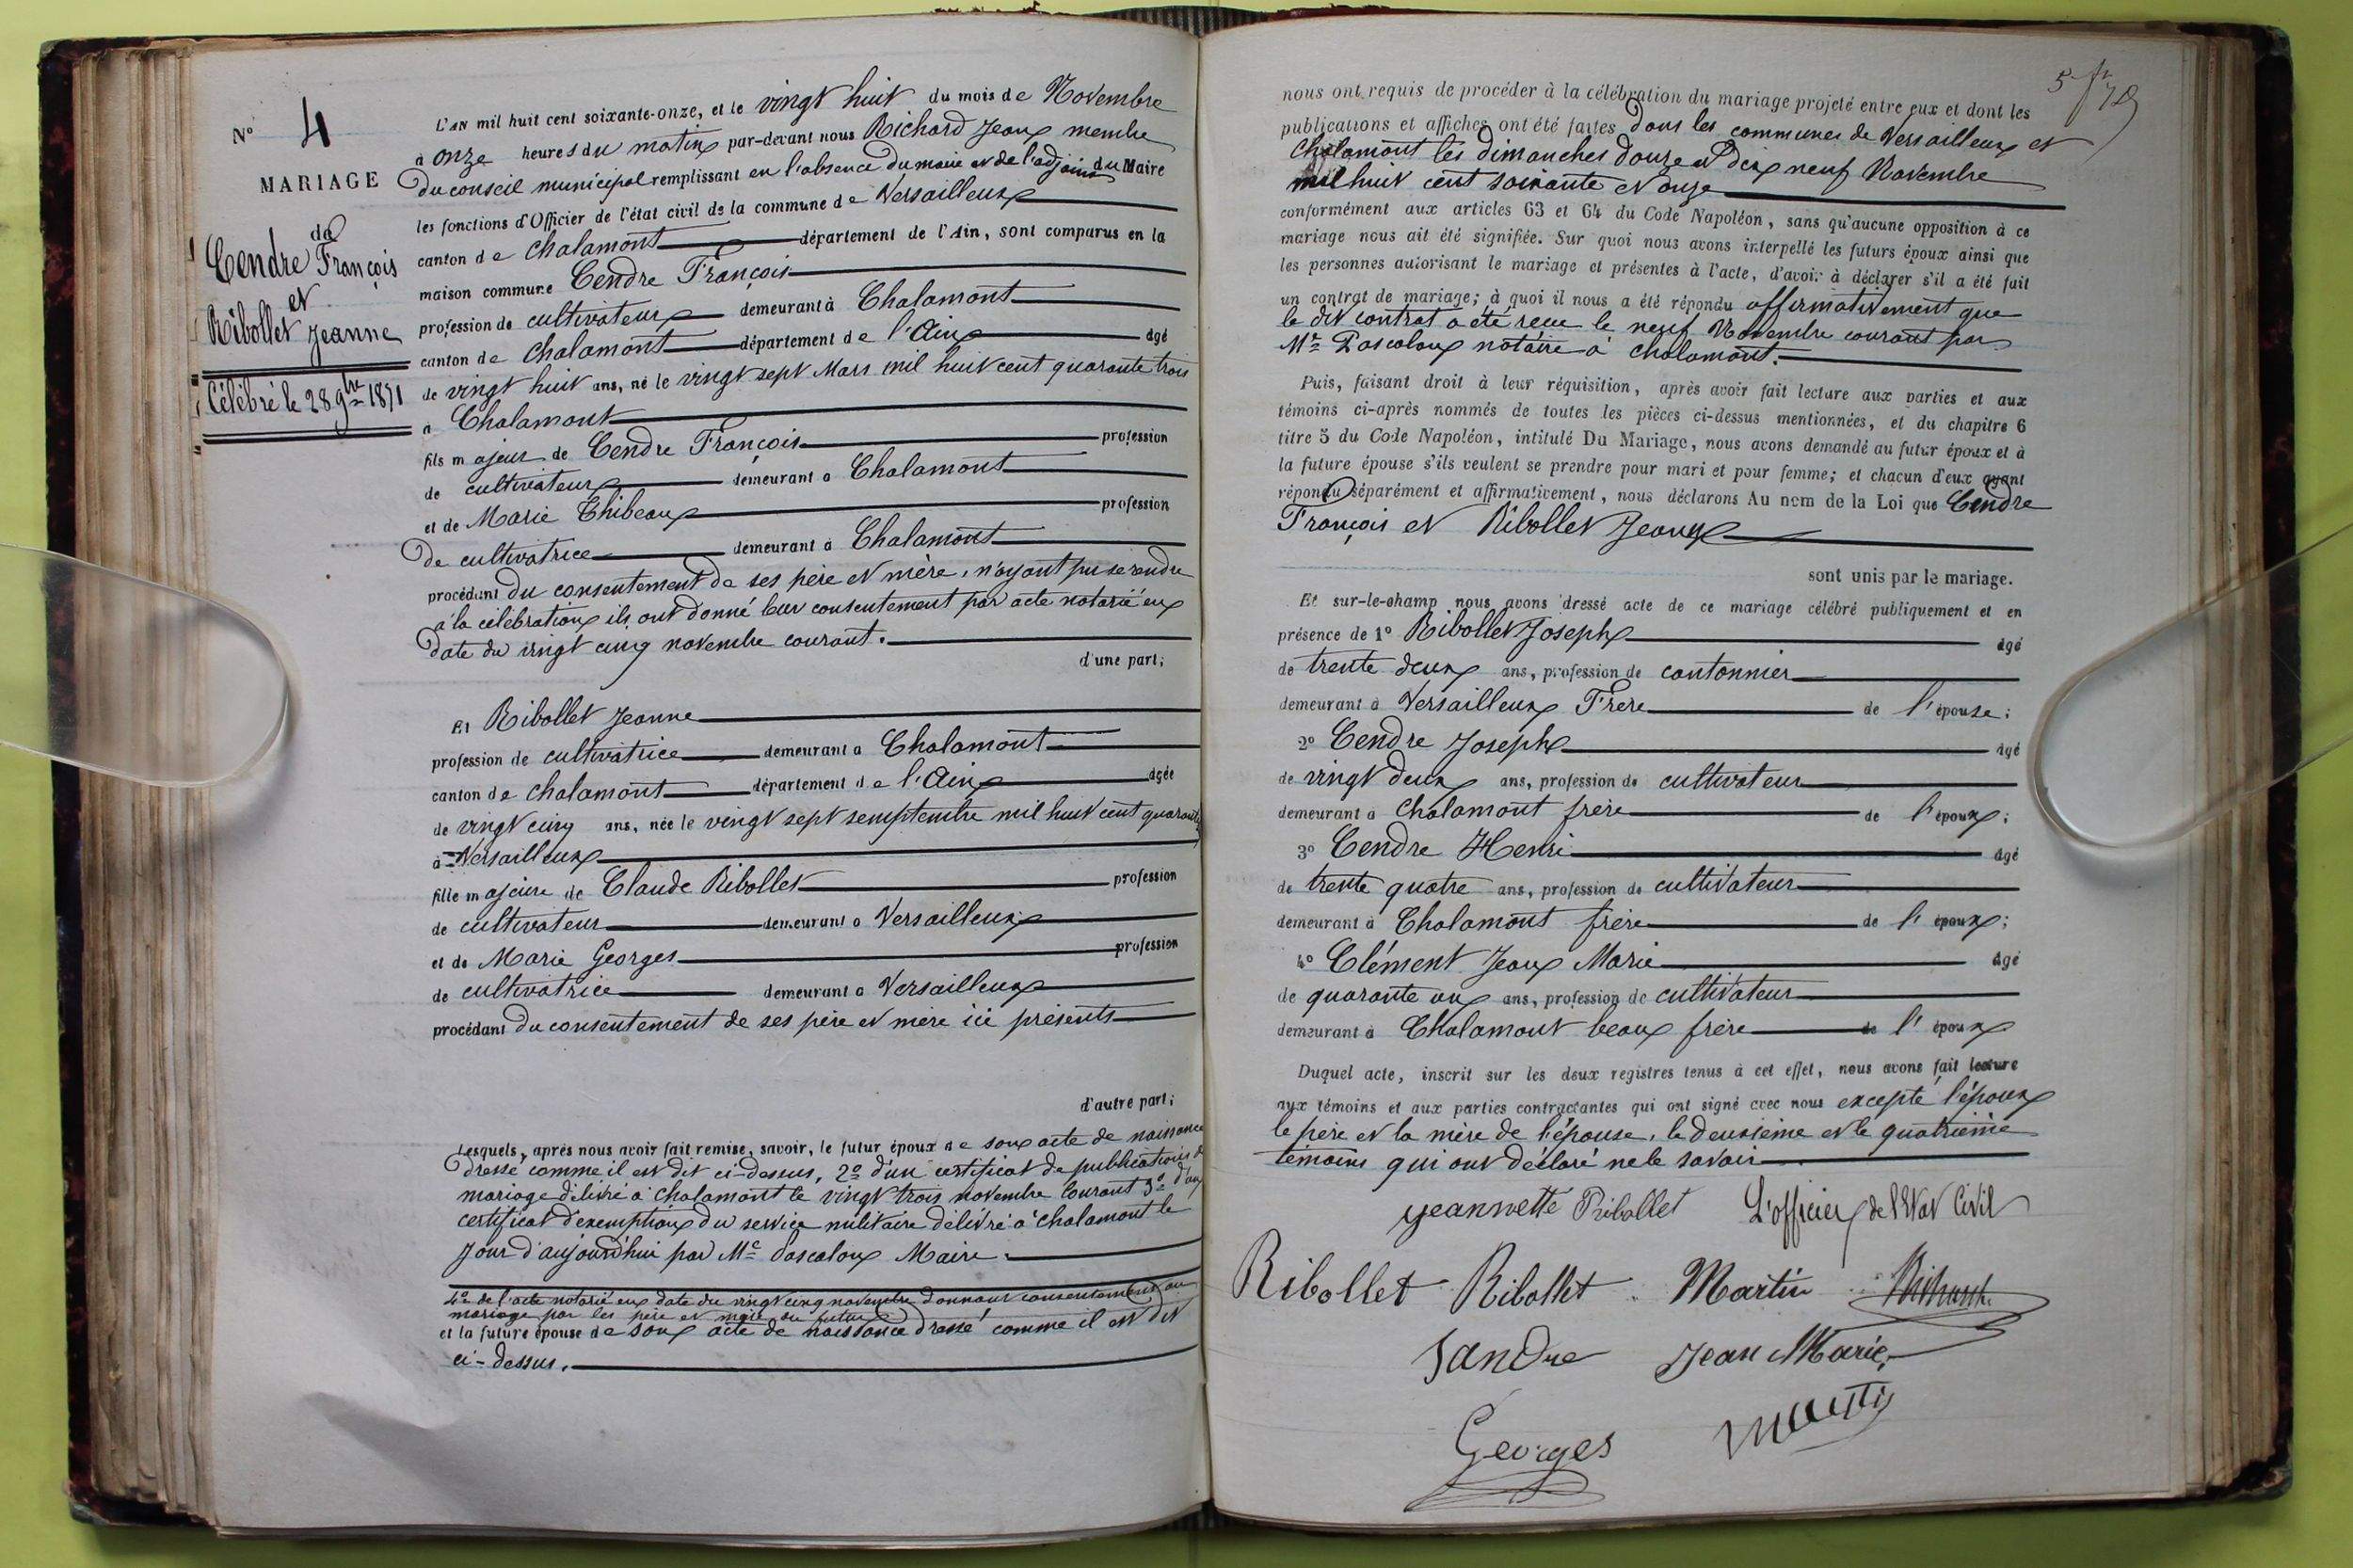 N° 4
MARIAGE
de
Cendre François
et
Ribollet Jeanne
Célébré le 28 9bre 1871
L'AN mil huit cent soixante-onze, et le vingt huit du mois de Novembre
à onze heures du matin par-devant nous Richard Jean membre
du conseil municipal remplissant en l'absence du maire et de l'adjoint du Maire
les fonctions d'Officier de l'état civil de la commune de Versailleux
canton de Chalamont département de l'Ain, sont comparus en la
maison commune Cendre François
profession de cultivateur demeurant à Chalamont
canton de Chalamont département de l'Ain âgé
de vingt huit ans, né le vingt sept Mars mil huit cent quarante trois
à Chalamont
fils majeur de Cendre François profession
de cultivateur demeurant à Chalamont
et de Marie Thibeaux profession
de cultivatrice demeurant à Chalamont
procédant du consentement de ses père et mère, n'ayant pu se rendre
à la célébration ils ont donné leur consentement par acte notarié en
date du vingt cinq novembre courant.
d'une part;
Et Ribollet Jeanne
profession de cultivatrice demeurant à Chalamont
canton de Chalamont département de l'Ain âgée
de vingt cinq ans, née le vingt sept semptembre mil huit cent quarante
à Versailleux
fille majeure de Claude Ribollet profession
de cultivateur demeurant à Versailleux
et de Marie Georges profession
de cultivatrice demeurant à Versailleux
procédant du consentement de ses père et mère ici présents
d'autre part;
Lesquels, après nous avoir fait remise, savoir, le futur époux de son acte de naissance
dressé comme il est dit ci-dessus, 2° d'un certificat de publications de
mariage délivré à Chalamont le vingt trois novembre courant 3° d'un
certificat d'exemption du service militaire délivré à Chalamont le
jour d'aujourd'hui par Mr Pascalon Maire.
4° de l'acte notarié en date du vingt cinq novembre donnant consentement au
mariage par les père et mère du futur
et la future épouse de son acte de naissance dressé comme il est dit
ci-dessus.
nous ont requis de procéder à la célébration du mariage projeté entre eux et dont les
publications et affiches ont été faites dans les communes de Versailleux et
Chalamont les dimanches douze et dix neuf Novembre
mil huit cent soixante et onze
conformément aux articles 63 et 64 du Code Napoléon, sans qu'aucune opposition à ce
mariage nous ait été signifiée. Sur quoi nous avons interpellé les futurs époux ainsi que
les personnes autorisant le mariage et présentes à l'acte, d'avoir à déclarer s'il a été fait
un contrat de mariage; à quoi il nous a été répondu affirmativement que
le dit contrat a été reçu le neuf Novembre courant par
Mr Pascalon notaire à Chalamont.
Puis, faisant droit à leur réquisition, après avoir fait lecture aux parties et aux
témoins ci-après nommés de toutes les pièces ci-dessus mentionnées, et du chapitre 6
titre 5 du Code Napoléon, intitulé Du Mariage, nous avons demandé au futur époux et à
la future épouse s'ils veulent se prendre pour mari et pour femme; et chacun d'eux ayant
répondu séparément et affirmativement, nous déclarons Au nom de la Loi que Cendre
François et Ribollet Jeanne
sont unis par le mariage.
Et sur-le-champ nous avons dressé acte de ce mariage célébré publiquement et en
présence de 1° Ribollet Joseph âgé
de trente deux ans, profession de cantonnier
demeurant à Versailleux Frère de l'épouse;
2° Cendre Joseph âgé
de vingt deux ans, profession de cultivateur
demeurant à Chalamont frère de l'époux;
3° Cendre Henri âgé
de trente quatre ans, profession de cultivateur
demeurant à Chalamont frère de l'époux;
4° Clément Jean Marie âgé
de quarante un ans, profession de cultivateur
demeurant à Chalamont beau frère de l'époux
Duquel acte, inscrit sur les deux registres tenus à cet effet, nous avons fait lecture
aux témoins et aux parties contractantes qui ont signé avec nous excepté l'époux
le père et la mère de l'épouse, le deuxième et le quatrième
témoins qui ont déclaré ne le savoir
Jeannette Ribollet L'officier de l'Etat Civil
Ribollet Ribollet Martin Richard
Sandre Jean Marie
Georges